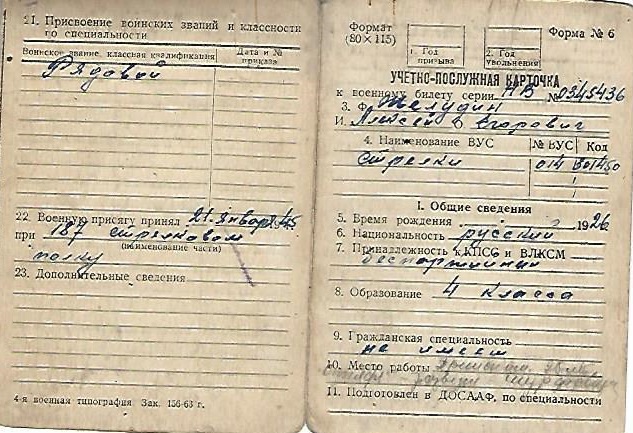 21. Присвоение воинских званий и классности
по специальности
Воинское звание, классная квалификация
Дата и №
приказа
Рядовой
22. Военную присягу принял 21. января 1945
при 187 стрелковом
(наименование части)
полку
23. Дополнительные сведения
4-я военная типография Зак. 156-63 г.
Формат
(80×115)
1. Год
призыва
2. Год
увольнения
Форма № 6
УЧЕТНО-ПОСЛУЖНАЯ КАРТОЧКА
к военному билету серии НВ № 0345436
3. Ф. Желудин
И. Алексей О. Егорович
4. Наименование ВУС
№ ВУС
Код
стрелки
I. Общие сведения
5. Время рождения 1926
6. Национальность русский
7. Принадлежность к КПСС и ВЛКСМ
беспартийный
8. Образование 4 класса
9. Гражданская специальность
не имеет
10. Место работы
11. Подготовлен в ДОСААФ, по специальности